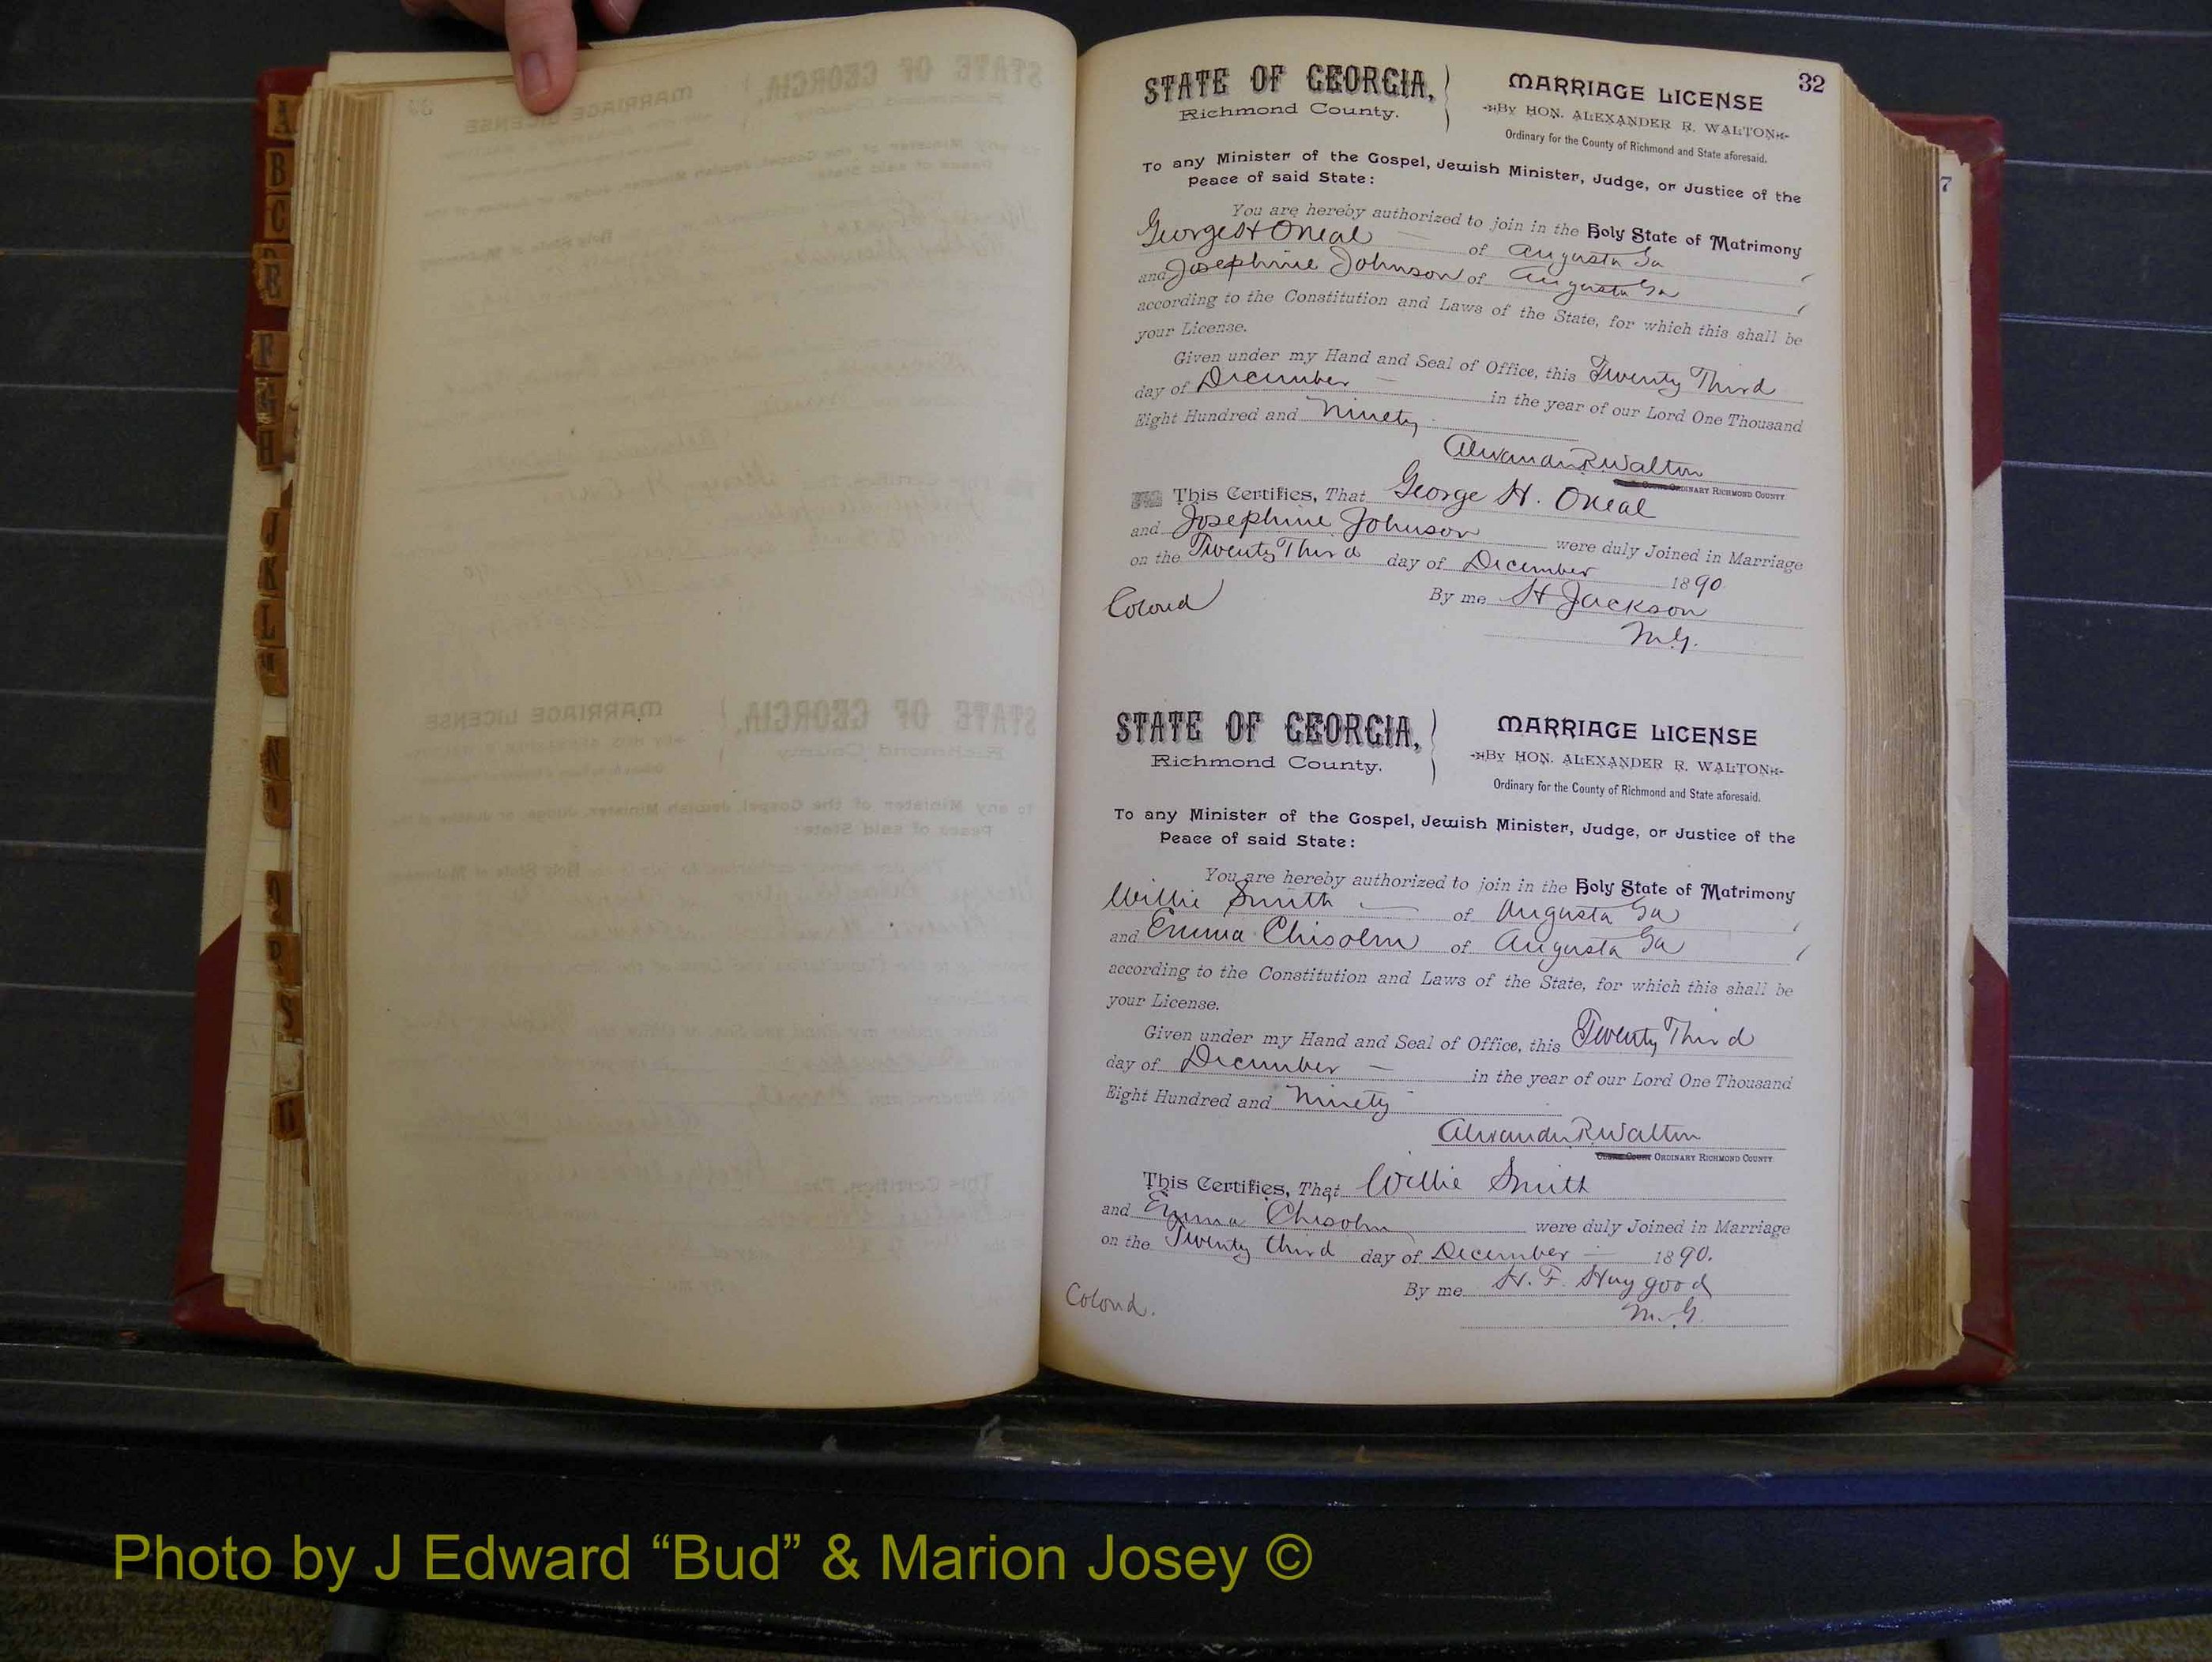 A
B
C
R
F
G
H
J
K
L
M
N
O
P
S
T
32
7
STATE OF GEORGIA,
Richmond County.
MARRIAGE LICENSE
By HON. ALEXANDER R. WALTON
Ordinary for the County of Richmond and State aforesaid.
To any Minister of the Gospel, Jewish Minister, Judge, or Justice of the
Peace of said State:
You are hereby authorized to join in the Holy State of Matrimony
George H Oneal of Augusta Ga
and Josephine Johnson of Augusta Ga
according to the Constitution and Laws of the State, for which this shall be
your License.
Given under my Hand and Seal of Office, this Twenty Third
day of December in the year of our Lord One Thousand
Eight Hundred and Ninety
Alexander R. Walton
ORDINARY RICHMOND COUNTY
This Certifies, That George H. Oneal
and Josephine Johnson were duly Joined in Marriage
on the Twenty Third day of December 1890
Colord
By me H Jackson
M.G.
STATE OF GEORGIA,
Richmond County.
MARRIAGE LICENSE
By HON. ALEXANDER R. WALTON
Ordinary for the County of Richmond and State aforesaid.
To any Minister of the Gospel, Jewish Minister, Judge, or Justice of the
Peace of said State:
You are hereby authorized to join in the Holy State of Matrimony
Willie Smith of Augusta Ga
and Emma Chisolm of Augusta Ga
according to the Constitution and Laws of the State, for which this shall be
your License.
Given under my Hand and Seal of Office, this Twenty Third
day of December in the year of our Lord One Thousand
Eight Hundred and Ninety
Alexander R. Walton
ORDINARY RICHMOND COUNTY
This Certifies, That Willie Smith
and Emma Chisolm were duly Joined in Marriage
on the Twenty third day of December 1890.
By me H. F. Haygood
Colord.
M.G.
Photo by J Edward “Bud” & Marion Josey ©